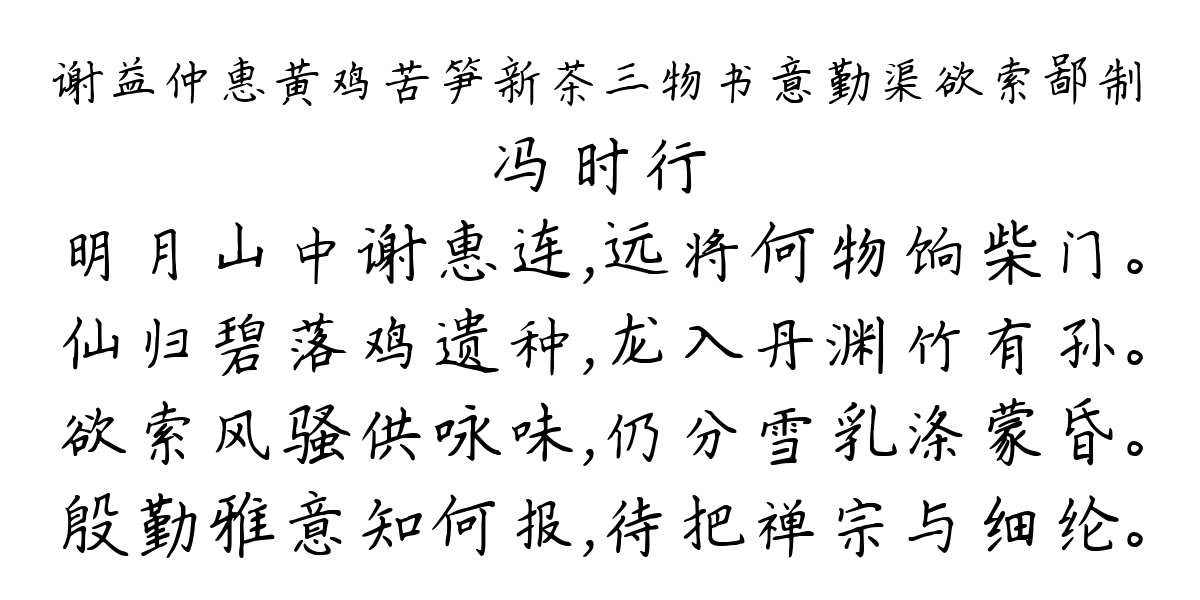 谢益仲惠黄鸡苦笋新茶三物书意勤渠欲索鄙制
冯时行
明月山中谢惠连,远将何物饷柴门。
仙归碧落鸡遗种,龙入丹渊竹有孙。
欲索风骚供咏味,仍分雪乳涤蒙昏。
殷勤雅意知何报,待把禅宗与细纶。